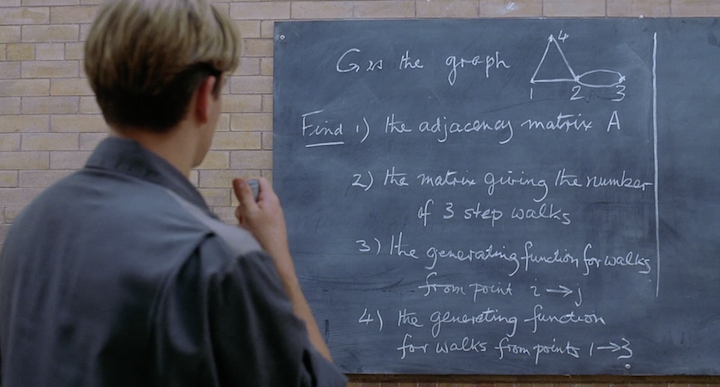 4
G is the graph
1 2 3
Find 1) the adjacency matrix A
2) the matrix giving the number
of 3 step walks
3) the generating function for walks
from point i → j
4) the generating function
for walks from points 1 → 3